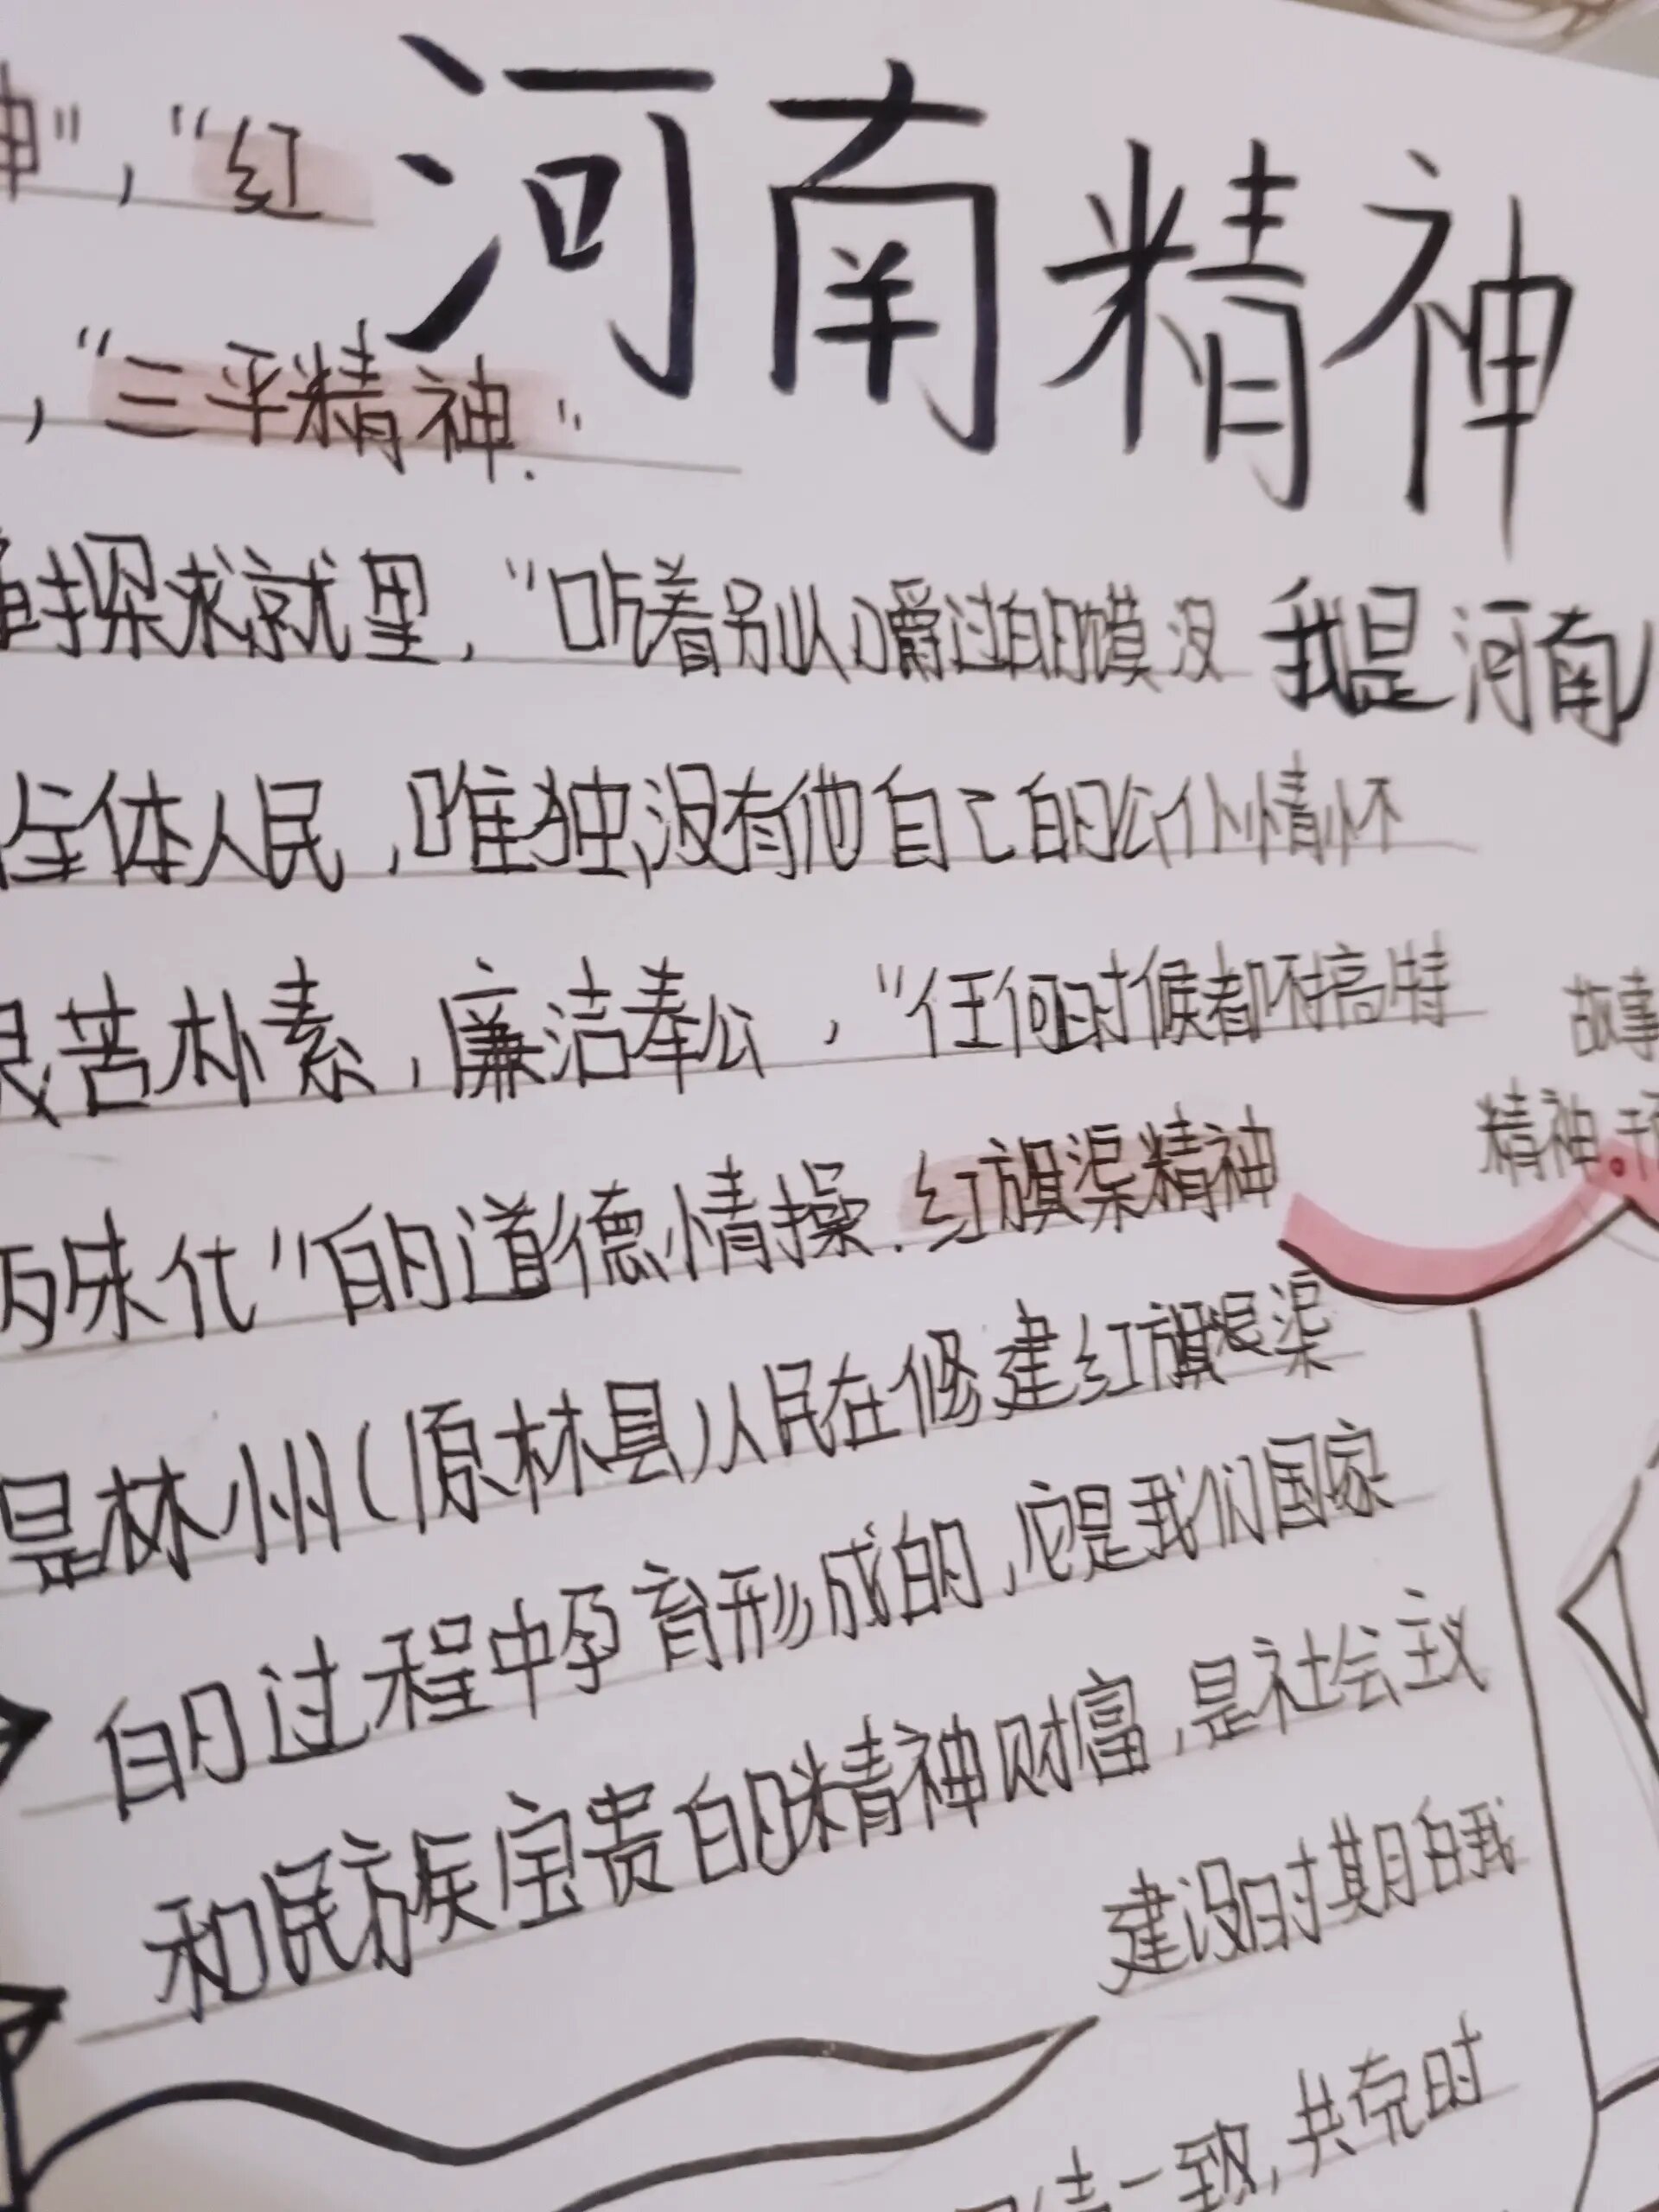 河南精神
神”，“红
，“三平精神.”
探求就里，“吃着别人嚼过的馍没
我是河南
全体人民，唯独没有他自己的公仆情怀
艰苦朴素，廉洁奉公，“任何时候都不搞特
故事
精神
殊化”的道德情操.红旗渠精神
是林州（原林县）人民在修建红旗渠
的过程中孕育形成的，它是我们国家
和民族宝贵的精神财富，是社会主义
建设时期的我
一致，共克时